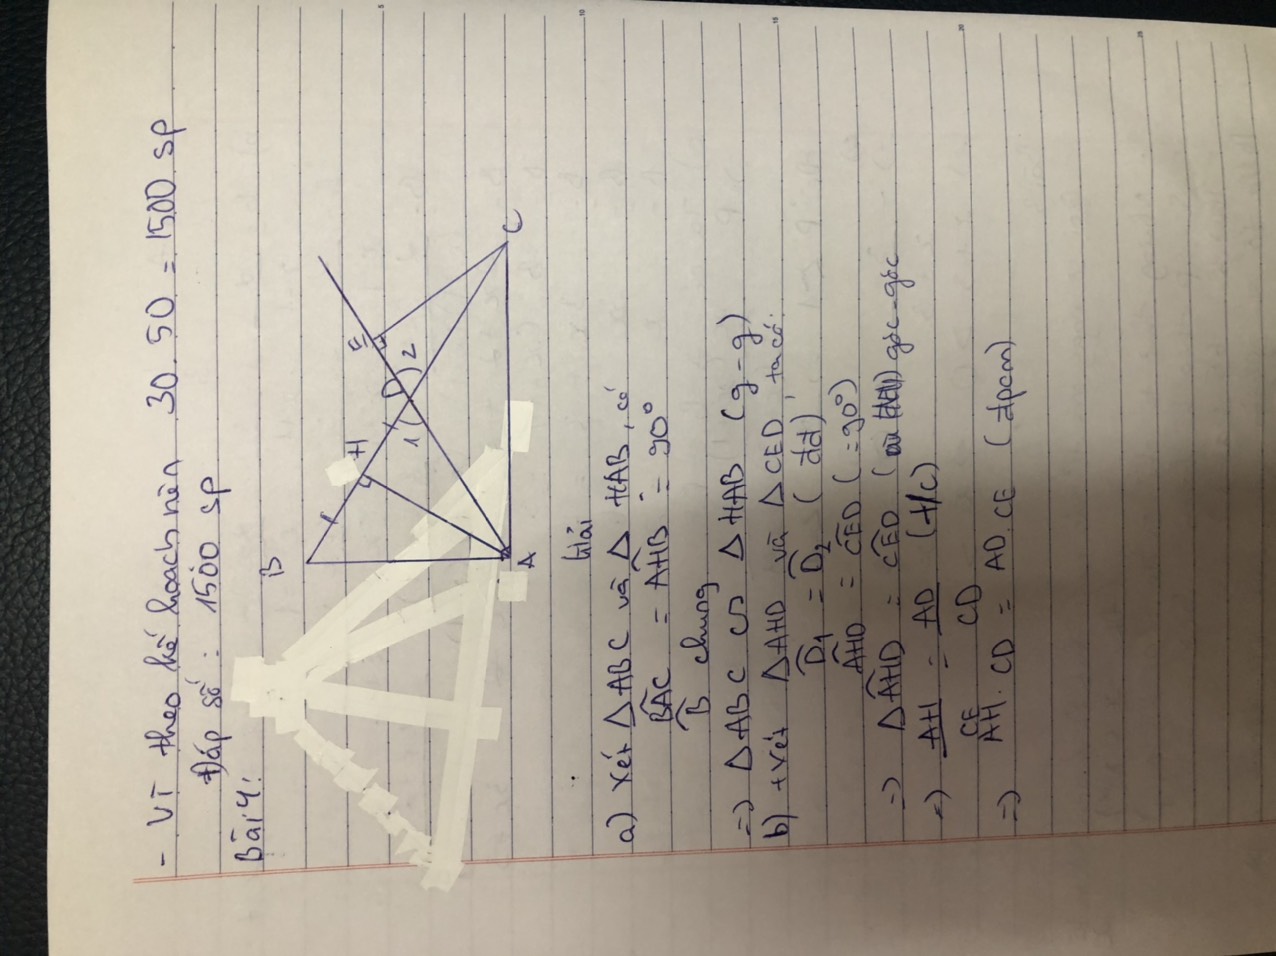 - Vì theo kế hoạch nên 30. 50 = 1500 sp
Đáp số : 1500 sp
Bài 4:
B
H
E
D
1
2
A
C
Giải
a) xét △ABC và △ HAB, có
BAC = AHB = 90°
B chung
=> △ABC ∽ △HAB (g-g)
b) +xét △AHD và △CED ta có:
D1 = D2 ( đđ)
AHD = CED ( =90°)
=> △AHD = CED ( góc-góc
=> AH/CE = AD/CD (t/c)
=> AH. CD = AD. CE (đpcm)
5
10
15
20
25